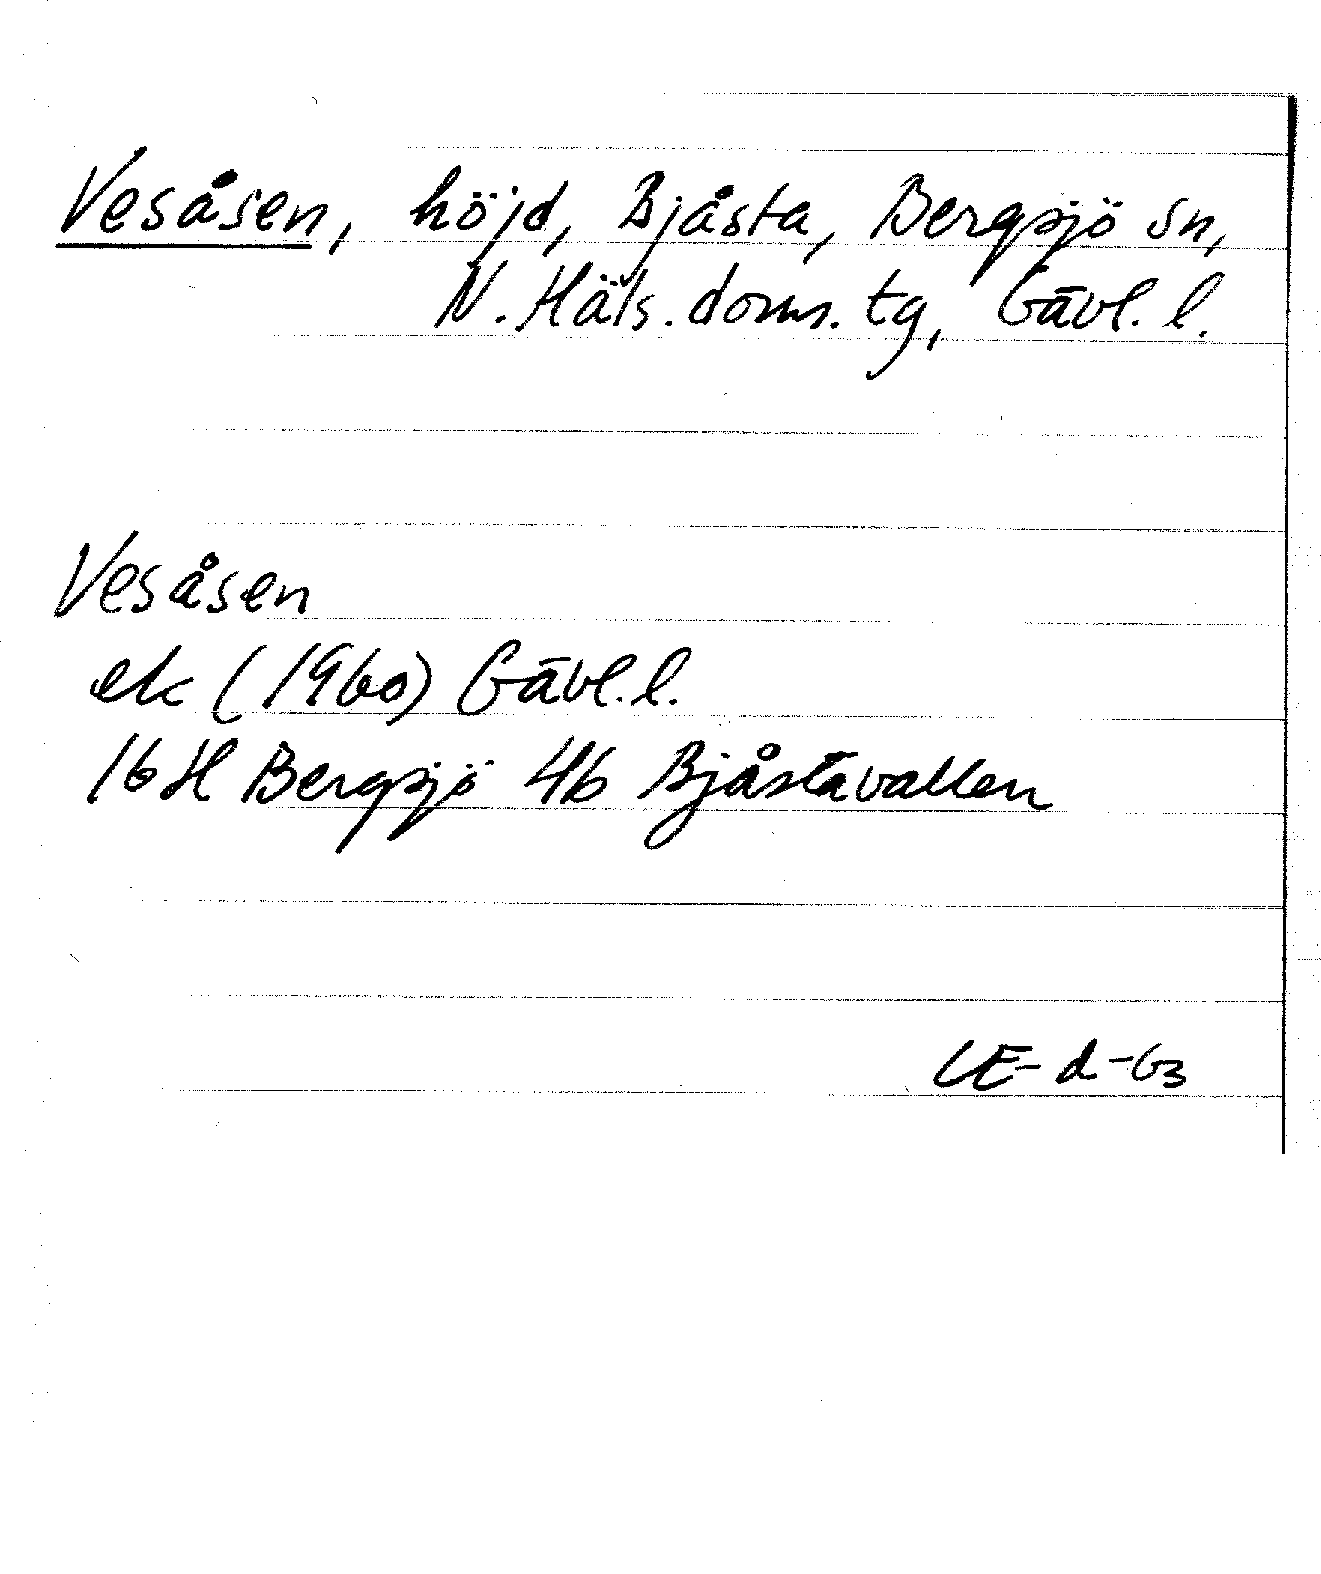 Vesåsen, höjd, Bjåsta, Bergsjö sn,
N. Häls. doms. tg, Gävl. l.
Vesåsen
ek (1960) Gävl. l.
16H Bergsjö 4b Bjåstavallen
CE-d-63